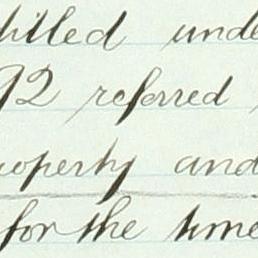 filled unde
92 referred
roperty and
for the time